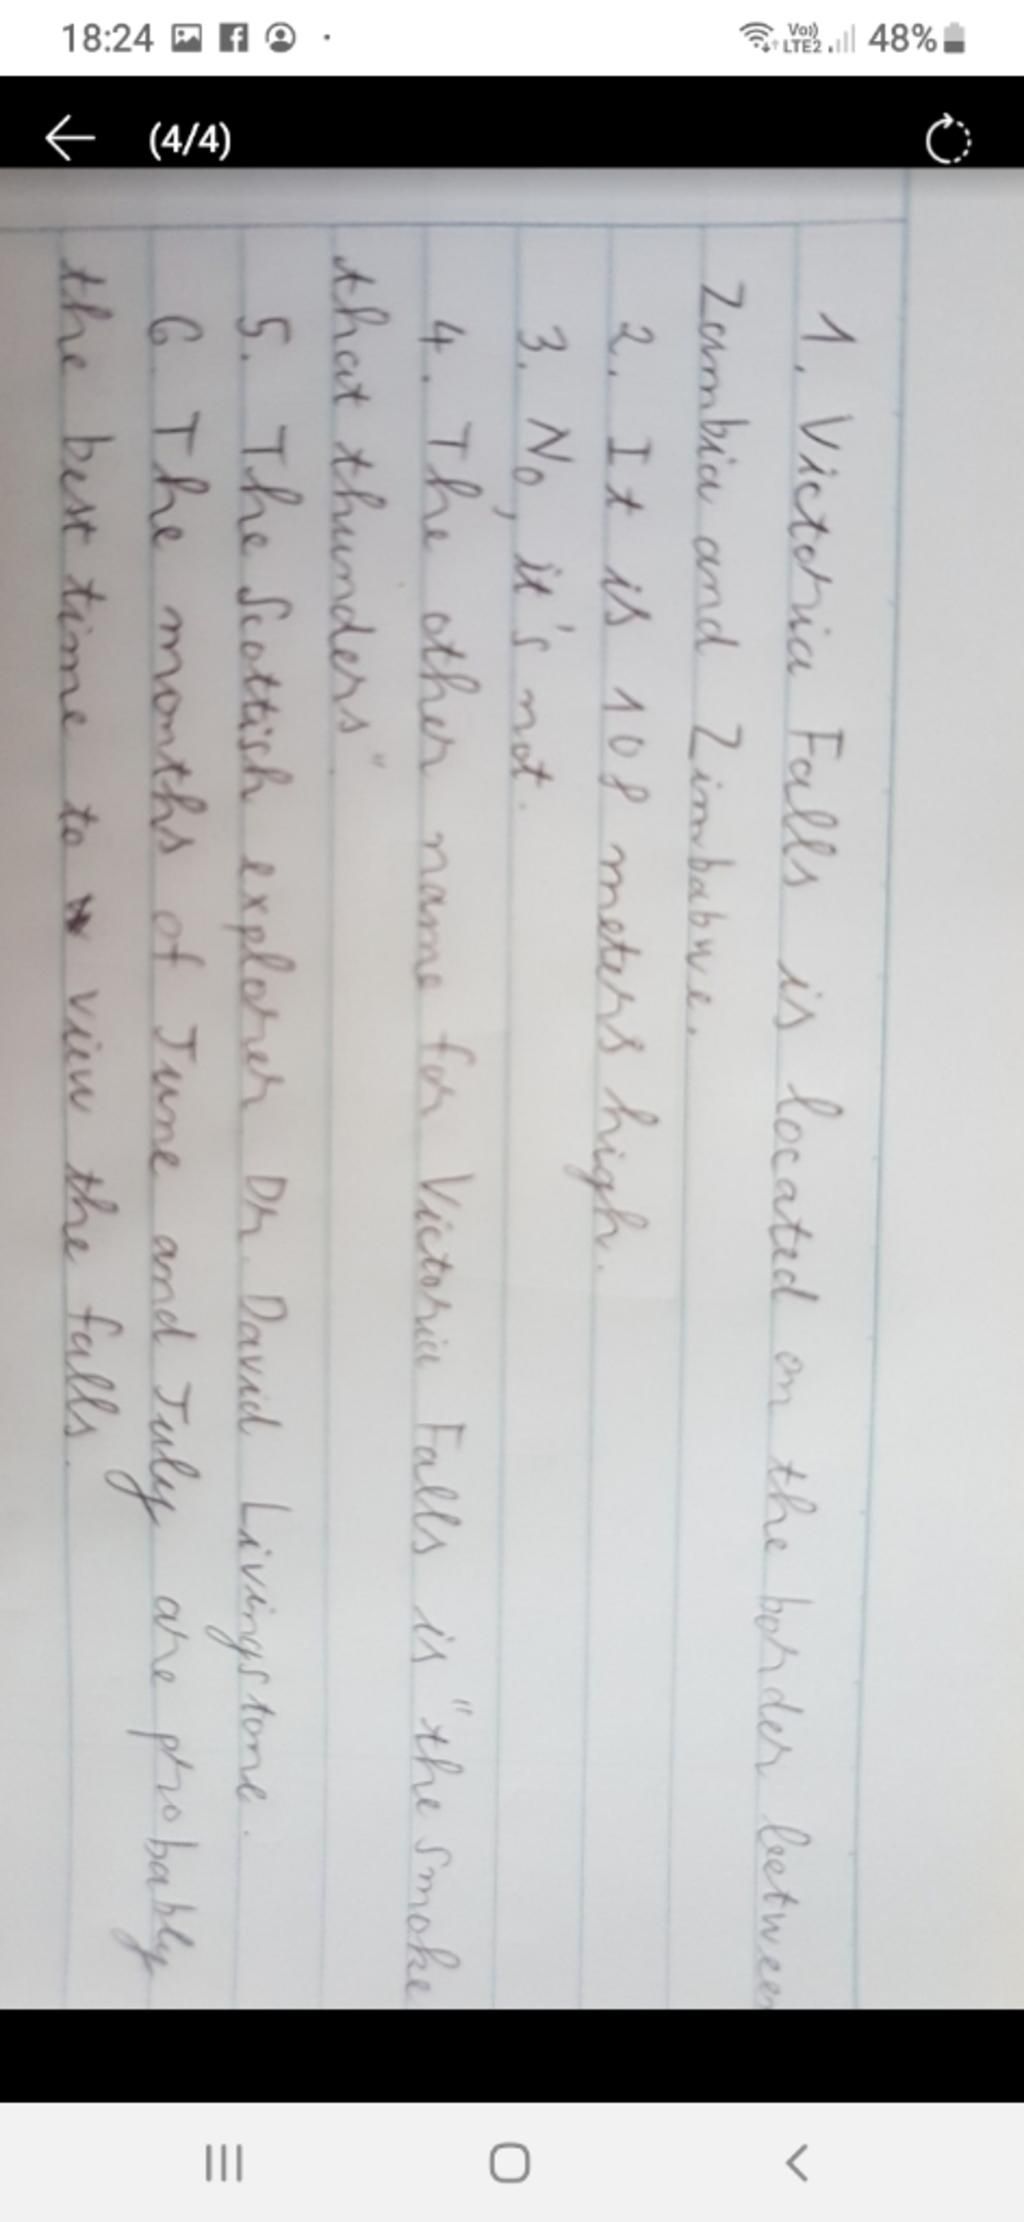 18:24
Vo))
LTE2
48%
(4/4)
1. Victoria Falls is located on the border between
Zambia and Zimbabwe.
2. It is 108 meters high.
3. No, it's not.
4. The other name for Victoria Falls is "the smoke
that thunders".
5. The Scottish explorer Dr. David Livingstone.
6. The months of June and July are probably
the best time to view the falls.